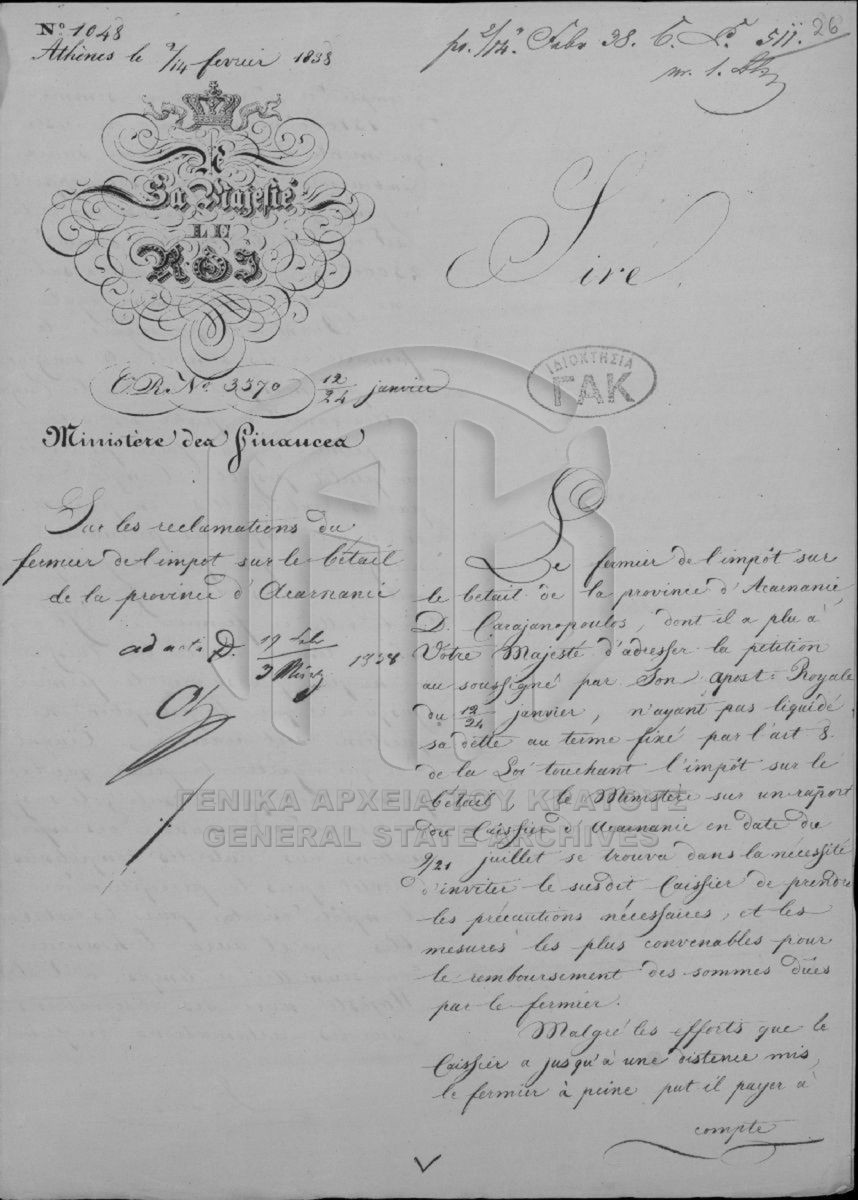 Nº 1048
Athènes le 2/14 fevrier 1838
pr. 2/14 Febr 38. C. P. 511.
26
nr. 1.
A
Sa Majesté
LE
ROI
C.R. Nº 3370 12/24 janvier
Ministère des Finances
Sur les reclamations du
fermier de l'impot sur le bétail
de la province d'Acarnanie
ad acta D. 19 Feb / 3 März 1838
Sire
ΙΔΙΟΚΤΗΣΙΑ
ΓΑΚ
Le fermier de l'impôt sur
le betail de la province d'Acarnanie,
D. Carajanopoulos, dont il a plu à
Votre Majesté d'adresser la petition
au soussigné par Son apost: Royale
du 12/24 janvier, n'ayant pas liquidé
sa dette au terme fixé par l'art 8.
de la Loi touchant l'impôt sur le
bétail, le Ministère sur un raport
du Caissier d'Acarnanie en date du
9/21 juillet se trouva dans la nécessité
d'inviter le susdit Caissier de prendre
les précautions nécessaires, et les
mesures les plus convenables pour
le remboursement des sommes dûes
par le fermier.
Malgré les efforts que le
Caissier a jusqu'à une distence mis,
le fermier à peine put il payer à
compte
ΓΕΝΙΚΑ ΑΡΧΕΙΑ ΤΟΥ ΚΡΑΤΟΥΣ
GENERAL STATE ARCHIVES